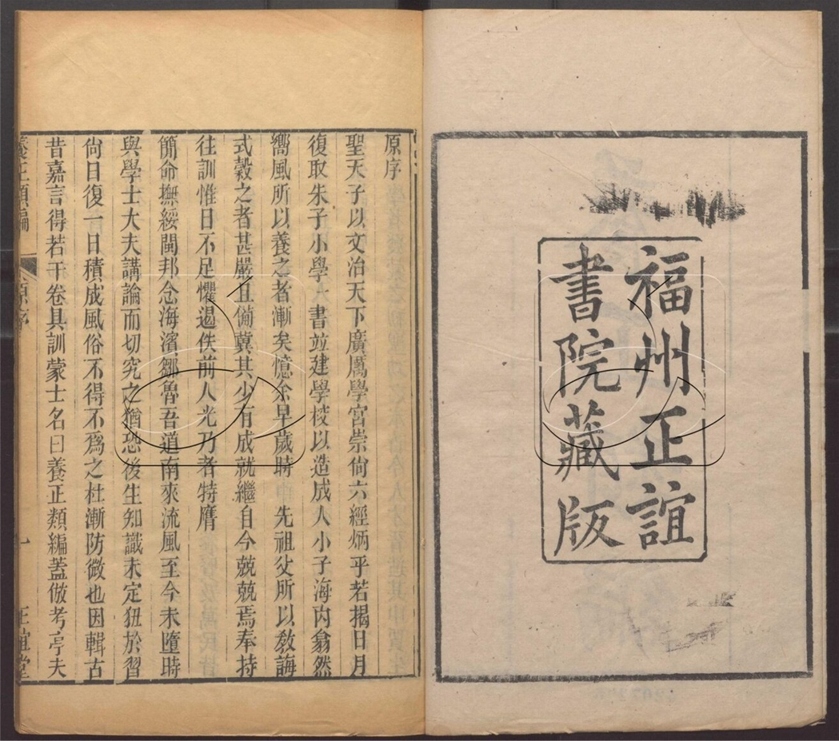 福州正誼
書院藏版
原序
聖天子以文治天下廣厲學宮崇尙六經炳乎若揭日月
復取朱子小學一書竝建學校以造成人小子海內翕然
嚮風所以養之者漸矣憶余早歲時 先祖父所以敎誨
式穀之者甚嚴且偹冀其少有成就繼自今兢兢焉奉持
往訓惟日不足懼遏佚前人光乃者特膺
簡命撫綏閩邦念海濱鄒魯吾道南來流風至今未墮時
與學士大夫講論而切究之猶恐後生知識未定狃於習
尙日復一日積成風俗不得不爲之杜漸防微也因輯古
昔嘉言得若干卷具訓蒙士名曰養正類編蓋倣考亭夫
養正類編 原序 一 正誼堂